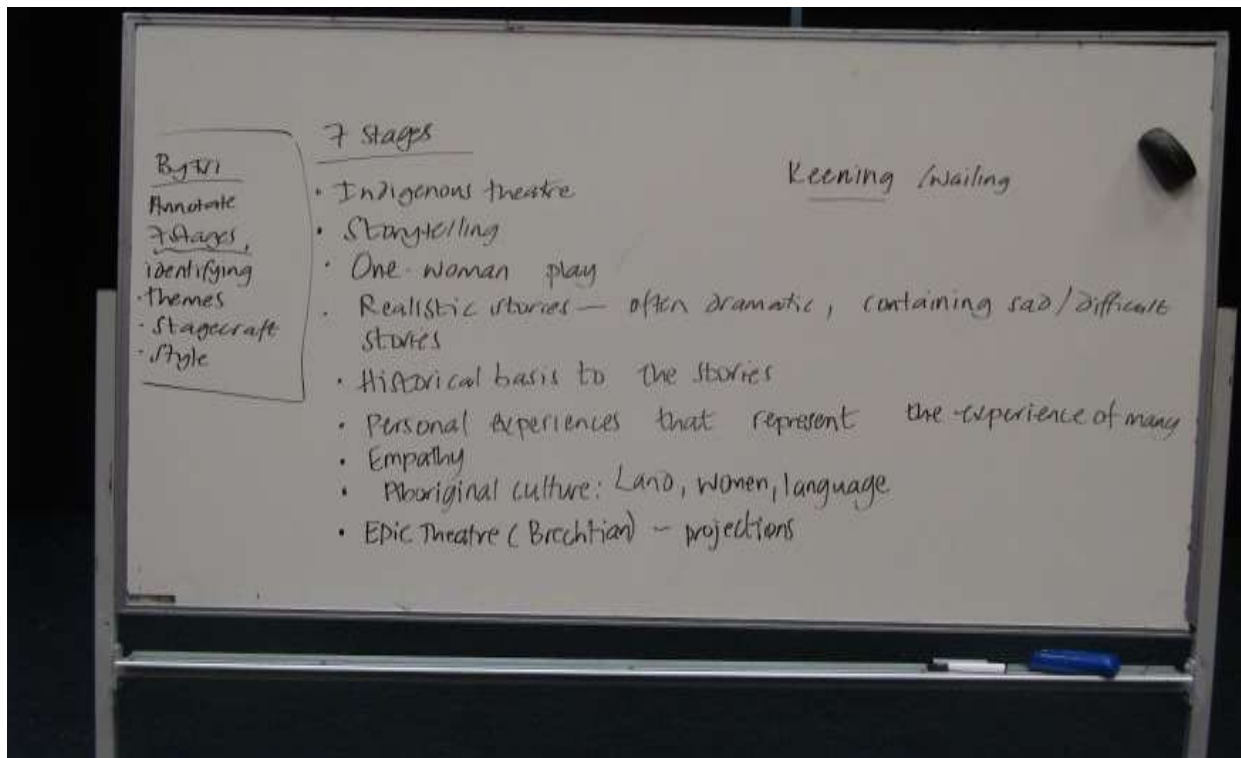 By Fri
Annotate
7 Stages,
identifying
· themes
· Stagecraft
· Style
7 Stages
• Indigenous theatre
• Storytelling
• One-woman play
• Realistic stories – often dramatic, containing sad/difficult
stories
• Historical basis to the stories
• Personal experiences that represent the experience of many
• Empathy
• Aboriginal culture: Land, women, language
• Epic Theatre (Brechtian) – projections
Keening /wailing